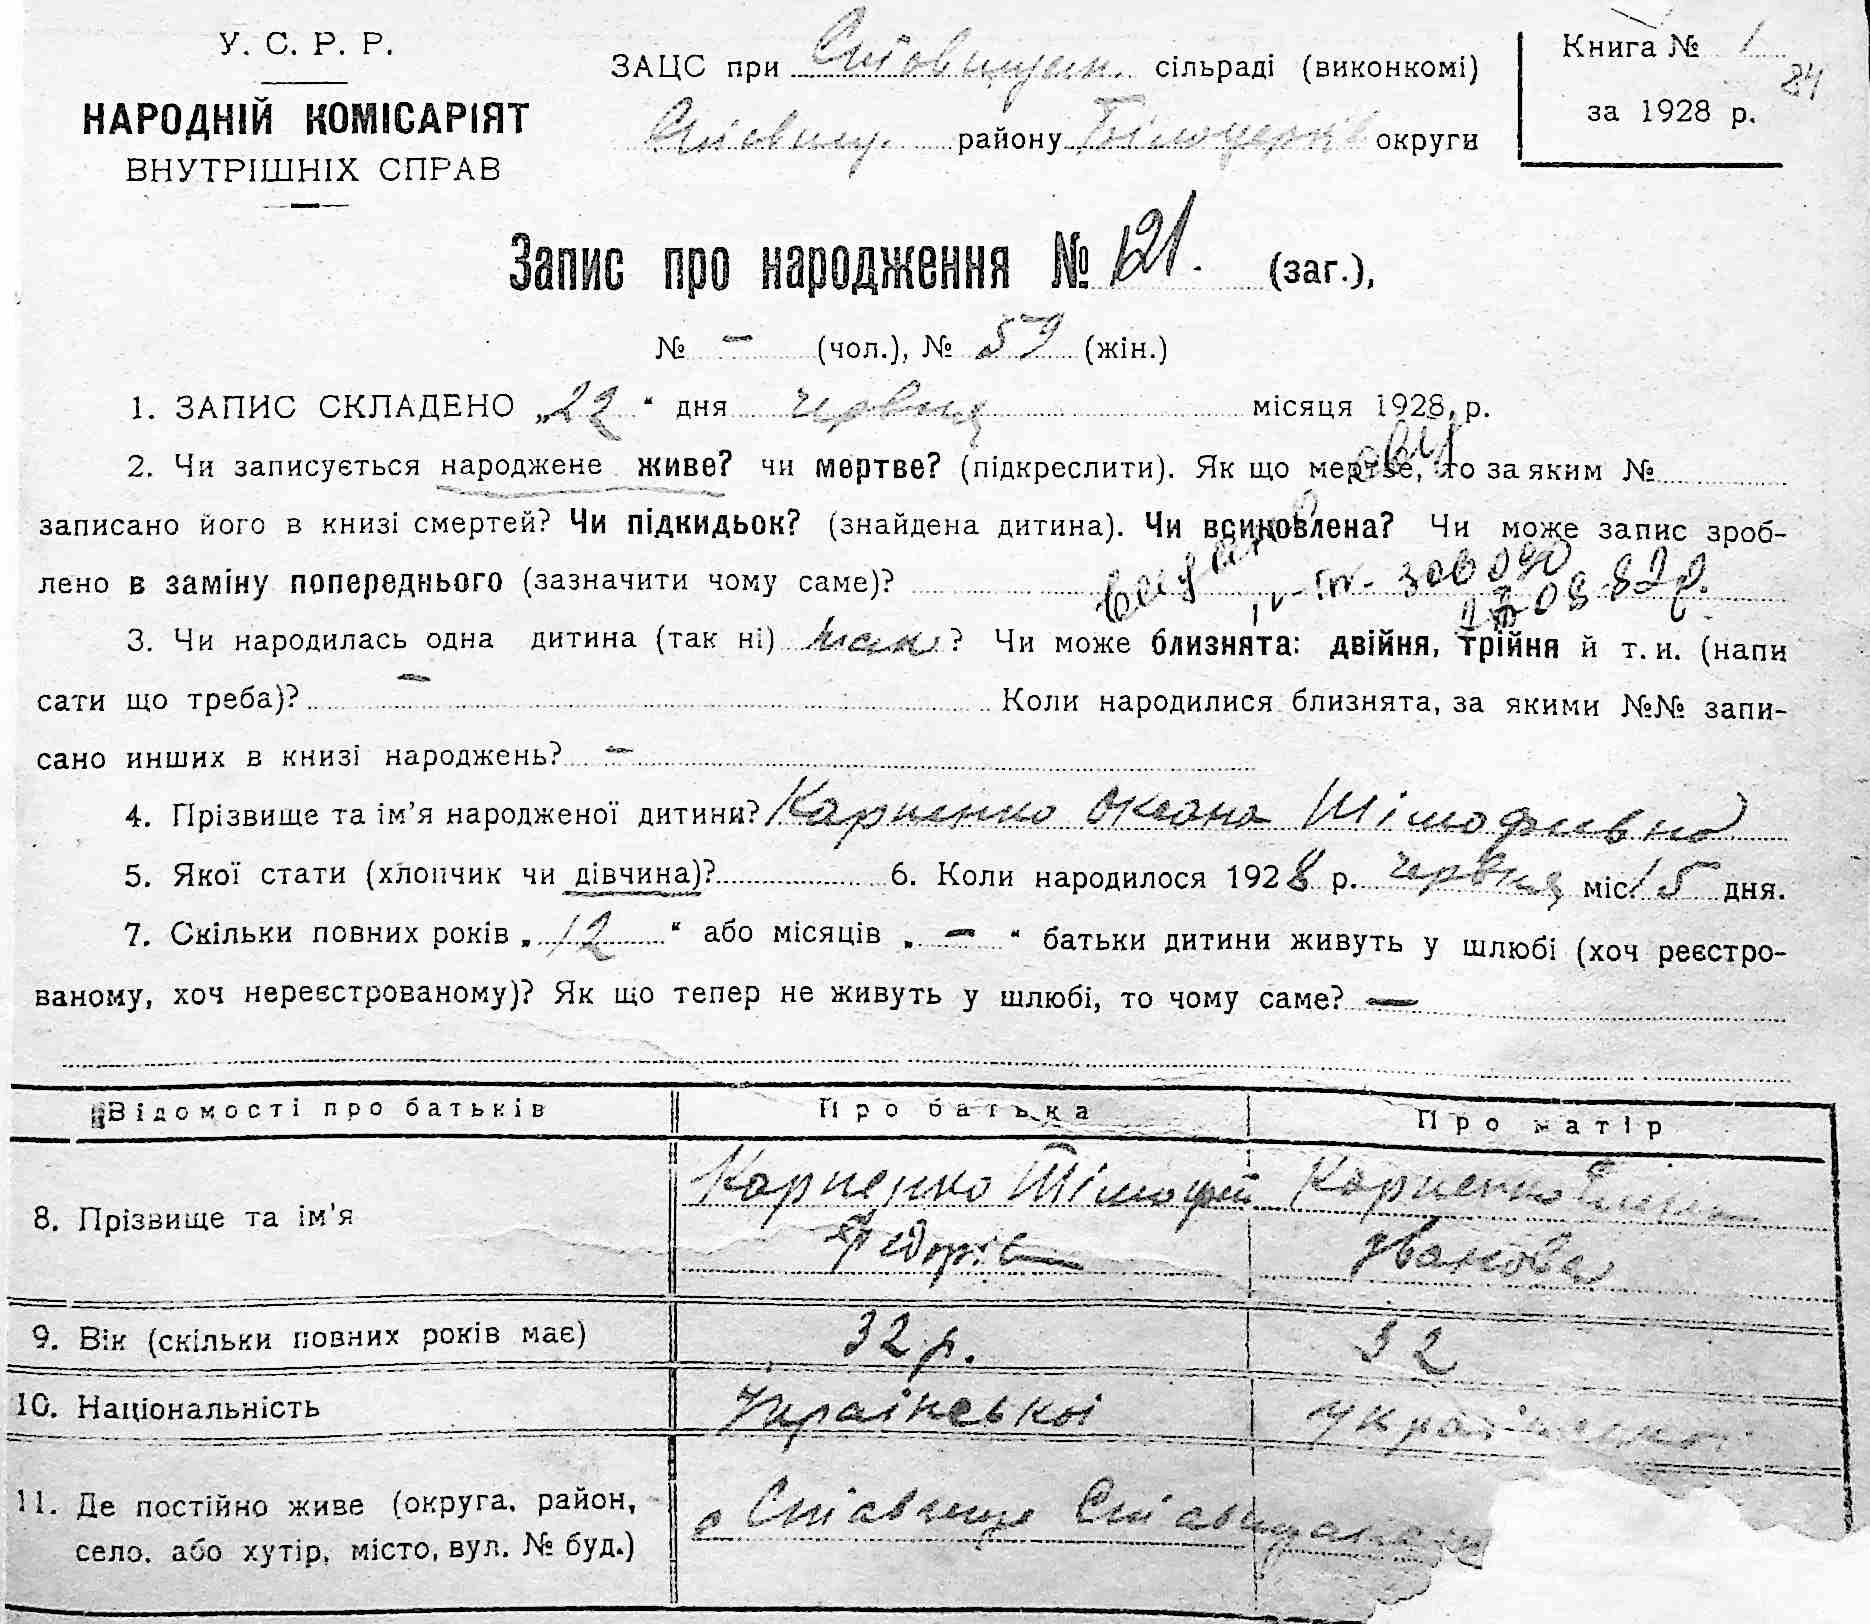 У. С. Р. Р.
НАРОДНІЙ КОМІСАРІЯТ
ВНУТРІШНІХ СПРАВ
ЗАЦС при Ставищан. сільраді (виконкомі)
Ставищ. району Білоцерків округи
Книга № 1
84
за 1928 р.
Запис про народження № 121. (заг.),
№ – (чол.), № 59 (жін.)
1. ЗАПИС СКЛАДЕНО „22“ дня червня місяця 1928 р.
2. Чи записується народжене живе? чи мертве? (підкреслити). Як що мертве, то за яким №
записано його в книзі смертей? Чи підкидьок? (знайдена дитина). Чи всиновлена? Чи може запис зроб-
лено в заміну попереднього (зазначити чому саме)?
82 р.
3. Чи народилась одна дитина (так ні) так? Чи може близнята: двійня, трійня й т. и. (напи
сати що треба)? – Коли народилися близнята, за якими №№ запи-
сано инших в книзі народжень? –
4. Прізвище та ім’я народженої дитини? Карпенко Оксана Тімофивна
5. Якої стати (хлопчик чи дівчина)? 6. Коли народилося 1928 р. червня міс. 15 дня.
7. Скільки повних років „12“ або місяців „–“ батьки дитини живуть у шлюбі (хоч реєстро-
ваному, хоч нереєстрованому)? Як що тепер не живуть у шлюбі, то чому саме? —
Відомості про батьків Про батька Про матір
8. Прізвище та ім’я Карпенко Тімофей Карпенко
Федорів Іванова
9. Вік (скільки повних років має) 32 р. 32
10. Національність Української Української
11. Де постійно живе (округа, район, с Ставище Ставищанськ
село. або хутір, місто, вул. № буд.)